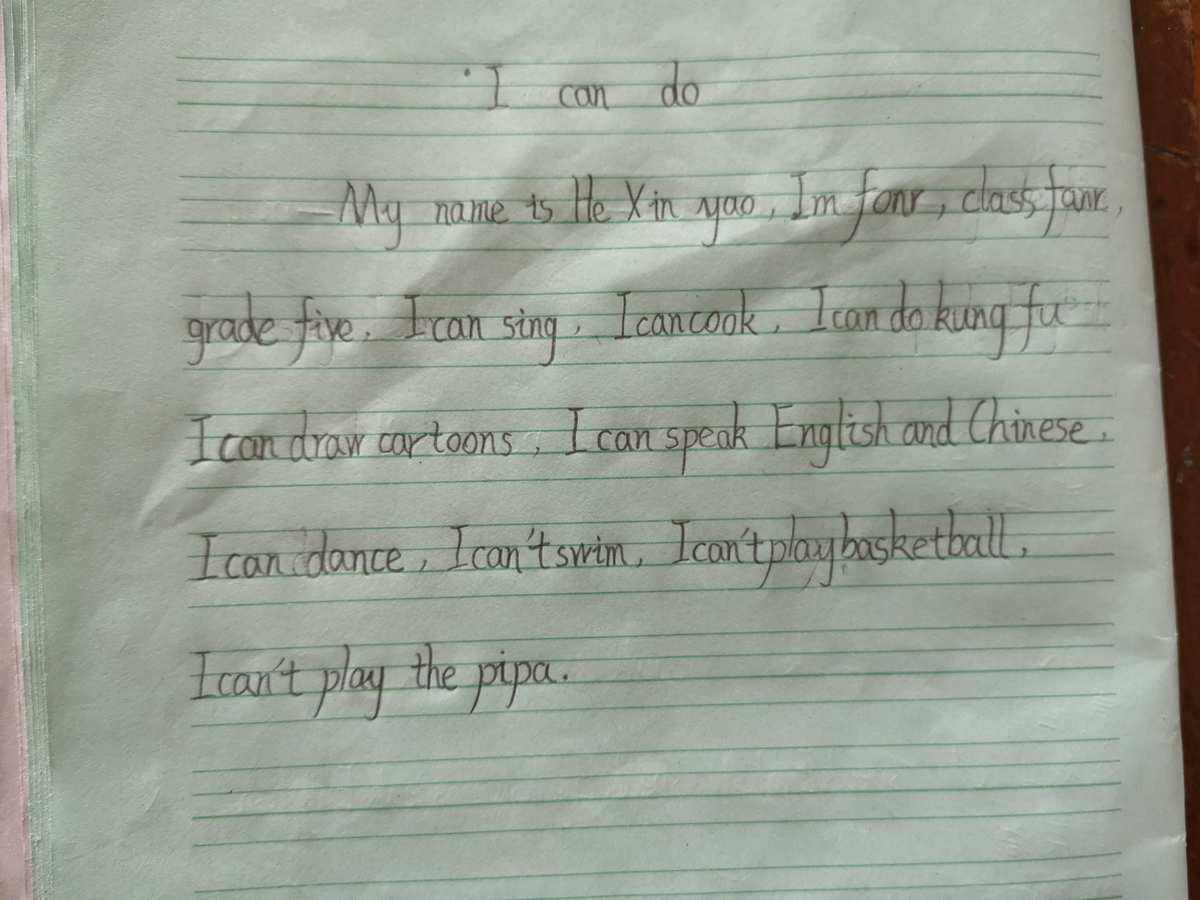 I can do
My name is He Xin yao, Im fonr, class fanr,
grade five. I can sing, I can cook, I can do kung fu
I can draw cartoons, I can speak English and Chinese.
I can dance, I can't swim, I can't play basketball,
I can't play the pipa.